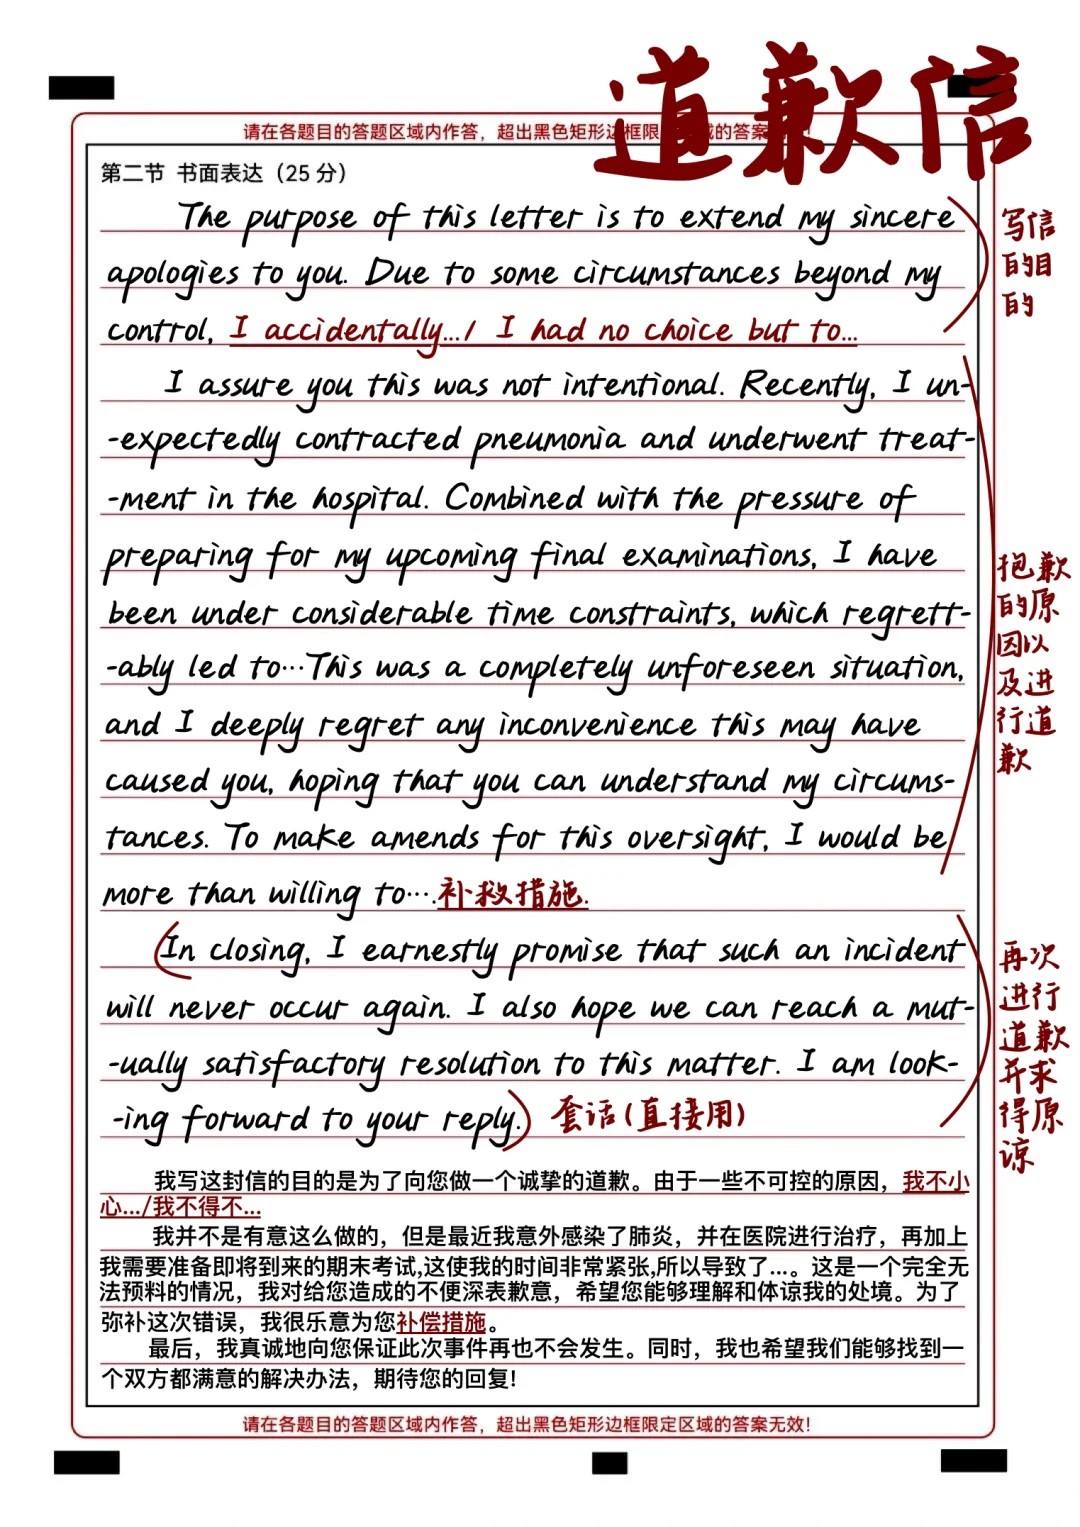 道歉信
请在各题目的答题区域内作答，超出黑色矩形边框限 的答案 !
第二节 书面表达（25 分）
The purpose of this letter is to extend my sincere
apologies to you. Due to some circumstances beyond my
control, I accidentally.../ I had no choice but to...
写信
的目
的
I assure you this was not intentional. Recently, I un-
-expectedly contracted pneumonia and underwent treat-
-ment in the hospital. Combined with the pressure of
preparing for my upcoming final examinations, I have
been under considerable time constraints, which regrett-
-ably led to…This was a completely unforeseen situation,
and I deeply regret any inconvenience this may have
caused you, hoping that you can understand my circums-
tances. To make amends for this oversight, I would be
more than willing to….补救措施.
抱歉
的原
因以
及进
行道
歉
In closing, I earnestly promise that such an incident
will never occur again. I also hope we can reach a mut-
-ually satisfactory resolution to this matter. I am look-
-ing forward to your reply.) 套话(直接用)
再次
进行
道歉
并求
得原
谅
我写这封信的目的是为了向您做一个诚挚的道歉。由于一些不可控的原因，我不小
心.../我不得不...
我并不是有意这么做的，但是最近我意外感染了肺炎，并在医院进行治疗，再加上
我需要准备即将到来的期末考试,这使我的时间非常紧张,所以导致了...。这是一个完全无
法预料的情况，我对给您造成的不便深表歉意，希望您能够理解和体谅我的处境。为了
弥补这次错误，我很乐意为您补偿措施。
最后，我真诚地向您保证此次事件再也不会发生。同时，我也希望我们能够找到一
个双方都满意的解决办法，期待您的回复!
请在各题目的答题区域内作答，超出黑色矩形边框限定区域的答案无效!